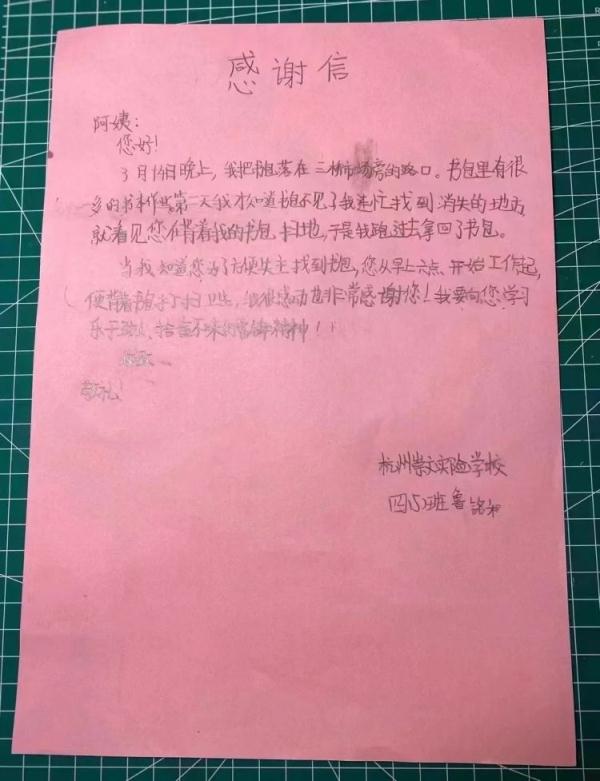 感谢信
阿姨：
您好！
3月14日晚上，我把书包落在三桥市场旁的路口。书包里有很
多的书本作业第二天我才知道书包不见了我连忙找到消失的地方
就看见您在背着我的书包扫地，于是我跑过去拿回了书包。
当我知道您为了方便失主找到书包，您从早上六点开始工作起，
便背着书包打扫卫生，我很感动也非常感谢您！我要向您学习
乐于助人、拾金不昧的雷锋精神！
此致
敬礼！
杭州崇文实验学校
四(5)班鲁铭